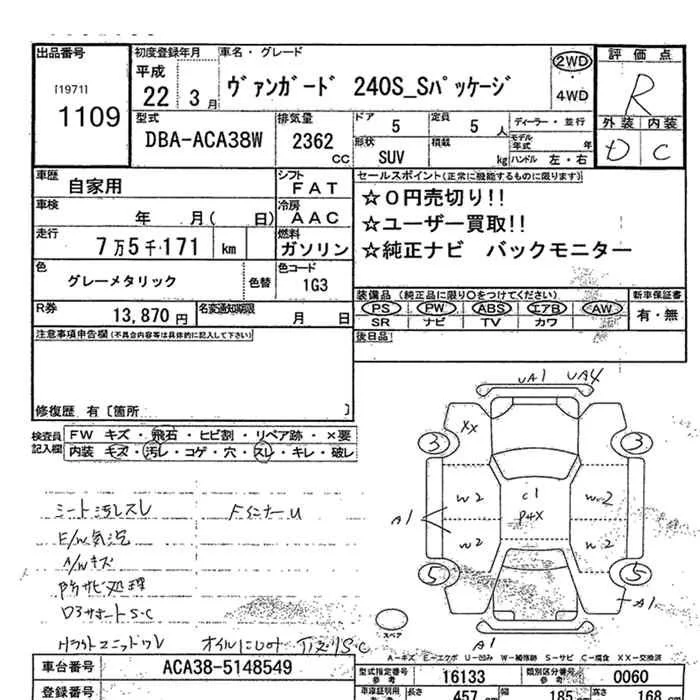 出品番号
[1971]
1109
初度登録年月
平成
22 3月
車名・グレード
ヴァンガード 240S_Sパッケージ
2WD
・
4WD
評価点
R
外装 内装
D C
型式
DBA-ACA38W
排気量
2362
CC
ドア
5
定員
5人
形状
SUV
積載
kg
ディーラー・並行
モデル年式 年
ハンドル 左・右
車歴
自家用
シフト
FAT
車検
年 月( 日)
冷房
AAC
走行
7万5千171 km
燃料
ガソリン
色
グレーメタリック
色替
色コード
1G3
R券
13,870円
名変通知期限
月 日
セールスポイント(正常に機能するものに限ります)
☆０円売切り!!
☆ユーザー買取!!
☆純正ナビ バックモニター
装備品(純正品に限り○をつけてください)
PS PW ABS エアB AW
SR ナビ TV カワ
新車保証書
有・無
後日品
注意事項申告欄(不具合内容等は具体的に記入して下さい)
修復歴 有〔箇所 〕
検査員記入欄
FW キズ・飛石・ヒビ割・リペア跡・×要
内装 キズ・汚レ・コゲ・穴・スレ・キレ・破レ
シート汚レスレ
FインナーU
E/W気泡
A/Wキズ
防サビ処理
UA1 UA4
XX
3 3
W2 C1 W2
A1 P4X
W2 W2
5 5
A1
A1
スペア
A－キズ E－エクボ U－凹み W－補修跡 S－サビ C－腐食 XX－交換済
車台番号
ACA38-5148549
型式指定番号
参考
16133
類別区分番号
参考
0060
登録番号
車庫証明用
参考
長さ
457 cm
185 cm
168 cm